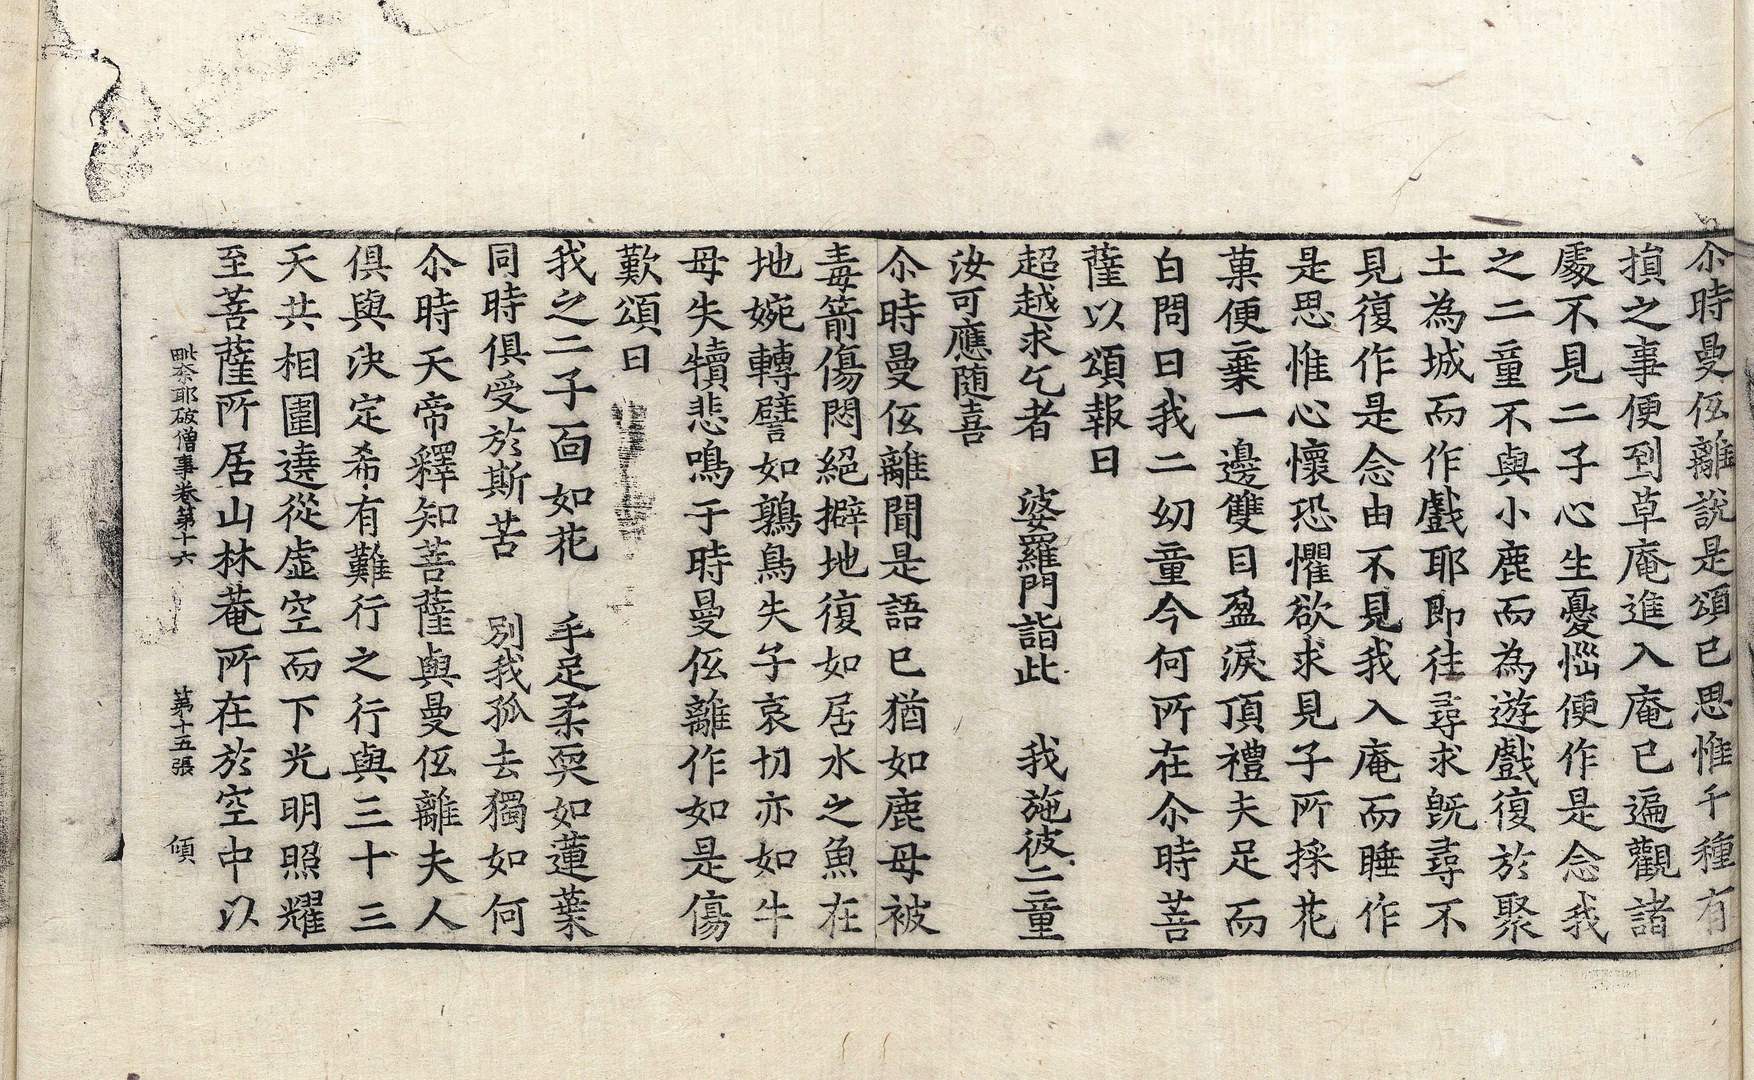 尒時曼伭離說是頌已思惟千種有
損之事便到草庵進入庵已遍觀諸
處不見二子心生憂惱便作是念我
之二童不與小鹿而為遊戲復於聚
土為城而作戲耶即往尋求旣尋不
見復作是念由不見我入庵而睡作
是思惟心懷恐懼欲求見子所採花
菓便棄一邊雙目盈淚頂禮夫足而
白問曰我二幼童今何所在尒時菩
薩以頌報曰
超越求乞者　婆羅門詣此　我施彼二童
汝可應随喜
尒時曼伭離聞是語已猶如鹿母被
毒箭傷悶絕擗地復如居水之魚在
地婉轉譬如鶉鳥失子哀切亦如牛
母失犢悲鳴于時曼伭離作如是傷
歎頌曰
我之二子面如花　手足柔耎如蓮葉
同時俱受於斯苦　別我孤去獨如何
尒時天帝釋知菩薩與曼伭離夫人
俱與決定希有難行之行與三十三
天共相圍遶從虛空而下光明照耀
至菩薩所居山林菴所在於空中以
毗奈耶破僧事卷第十六　第十五張　傾